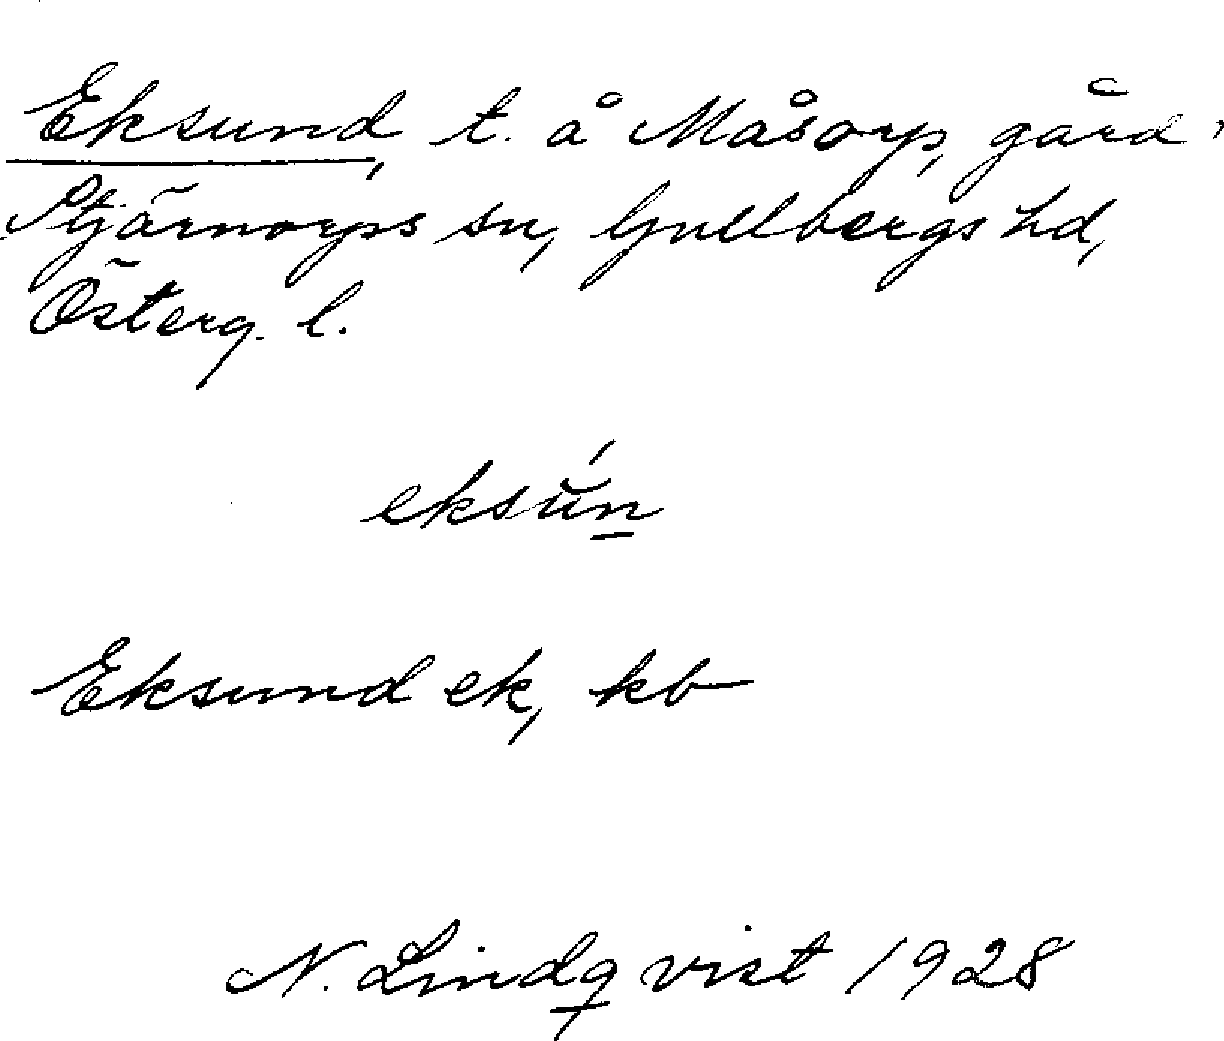 Eksund, t. å Måsorp, gård,
Stjärnorps sn, Gullbergs hd,
Österg. l.
eksŭ́n̲
Eksund ek, kb
N. Lindqvist 1928